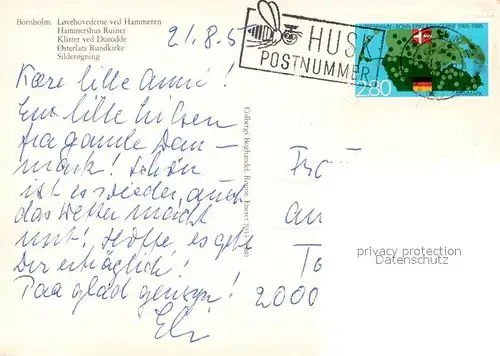 Bornholm. Løvehovederne ved Hammeren
Hammershus Ruiner
Klitter ved Dueodde
Østerlars Rundkirke
Silderøgning
21.8.5
HUSK
POSTNUMMER
280
Kære lille Anni!
Ein lille hilsen
fra gamle Dan-
mark! Schön
ist es wieder, auch
das Wetter macht
mit! Hoffe es geht
Dir erträglich!
Paa glad gensyn!
Eli
Colbergs Boghandel, Rønne. Eneret
Fr
an
To
2000
privacy protection
Datenschutz